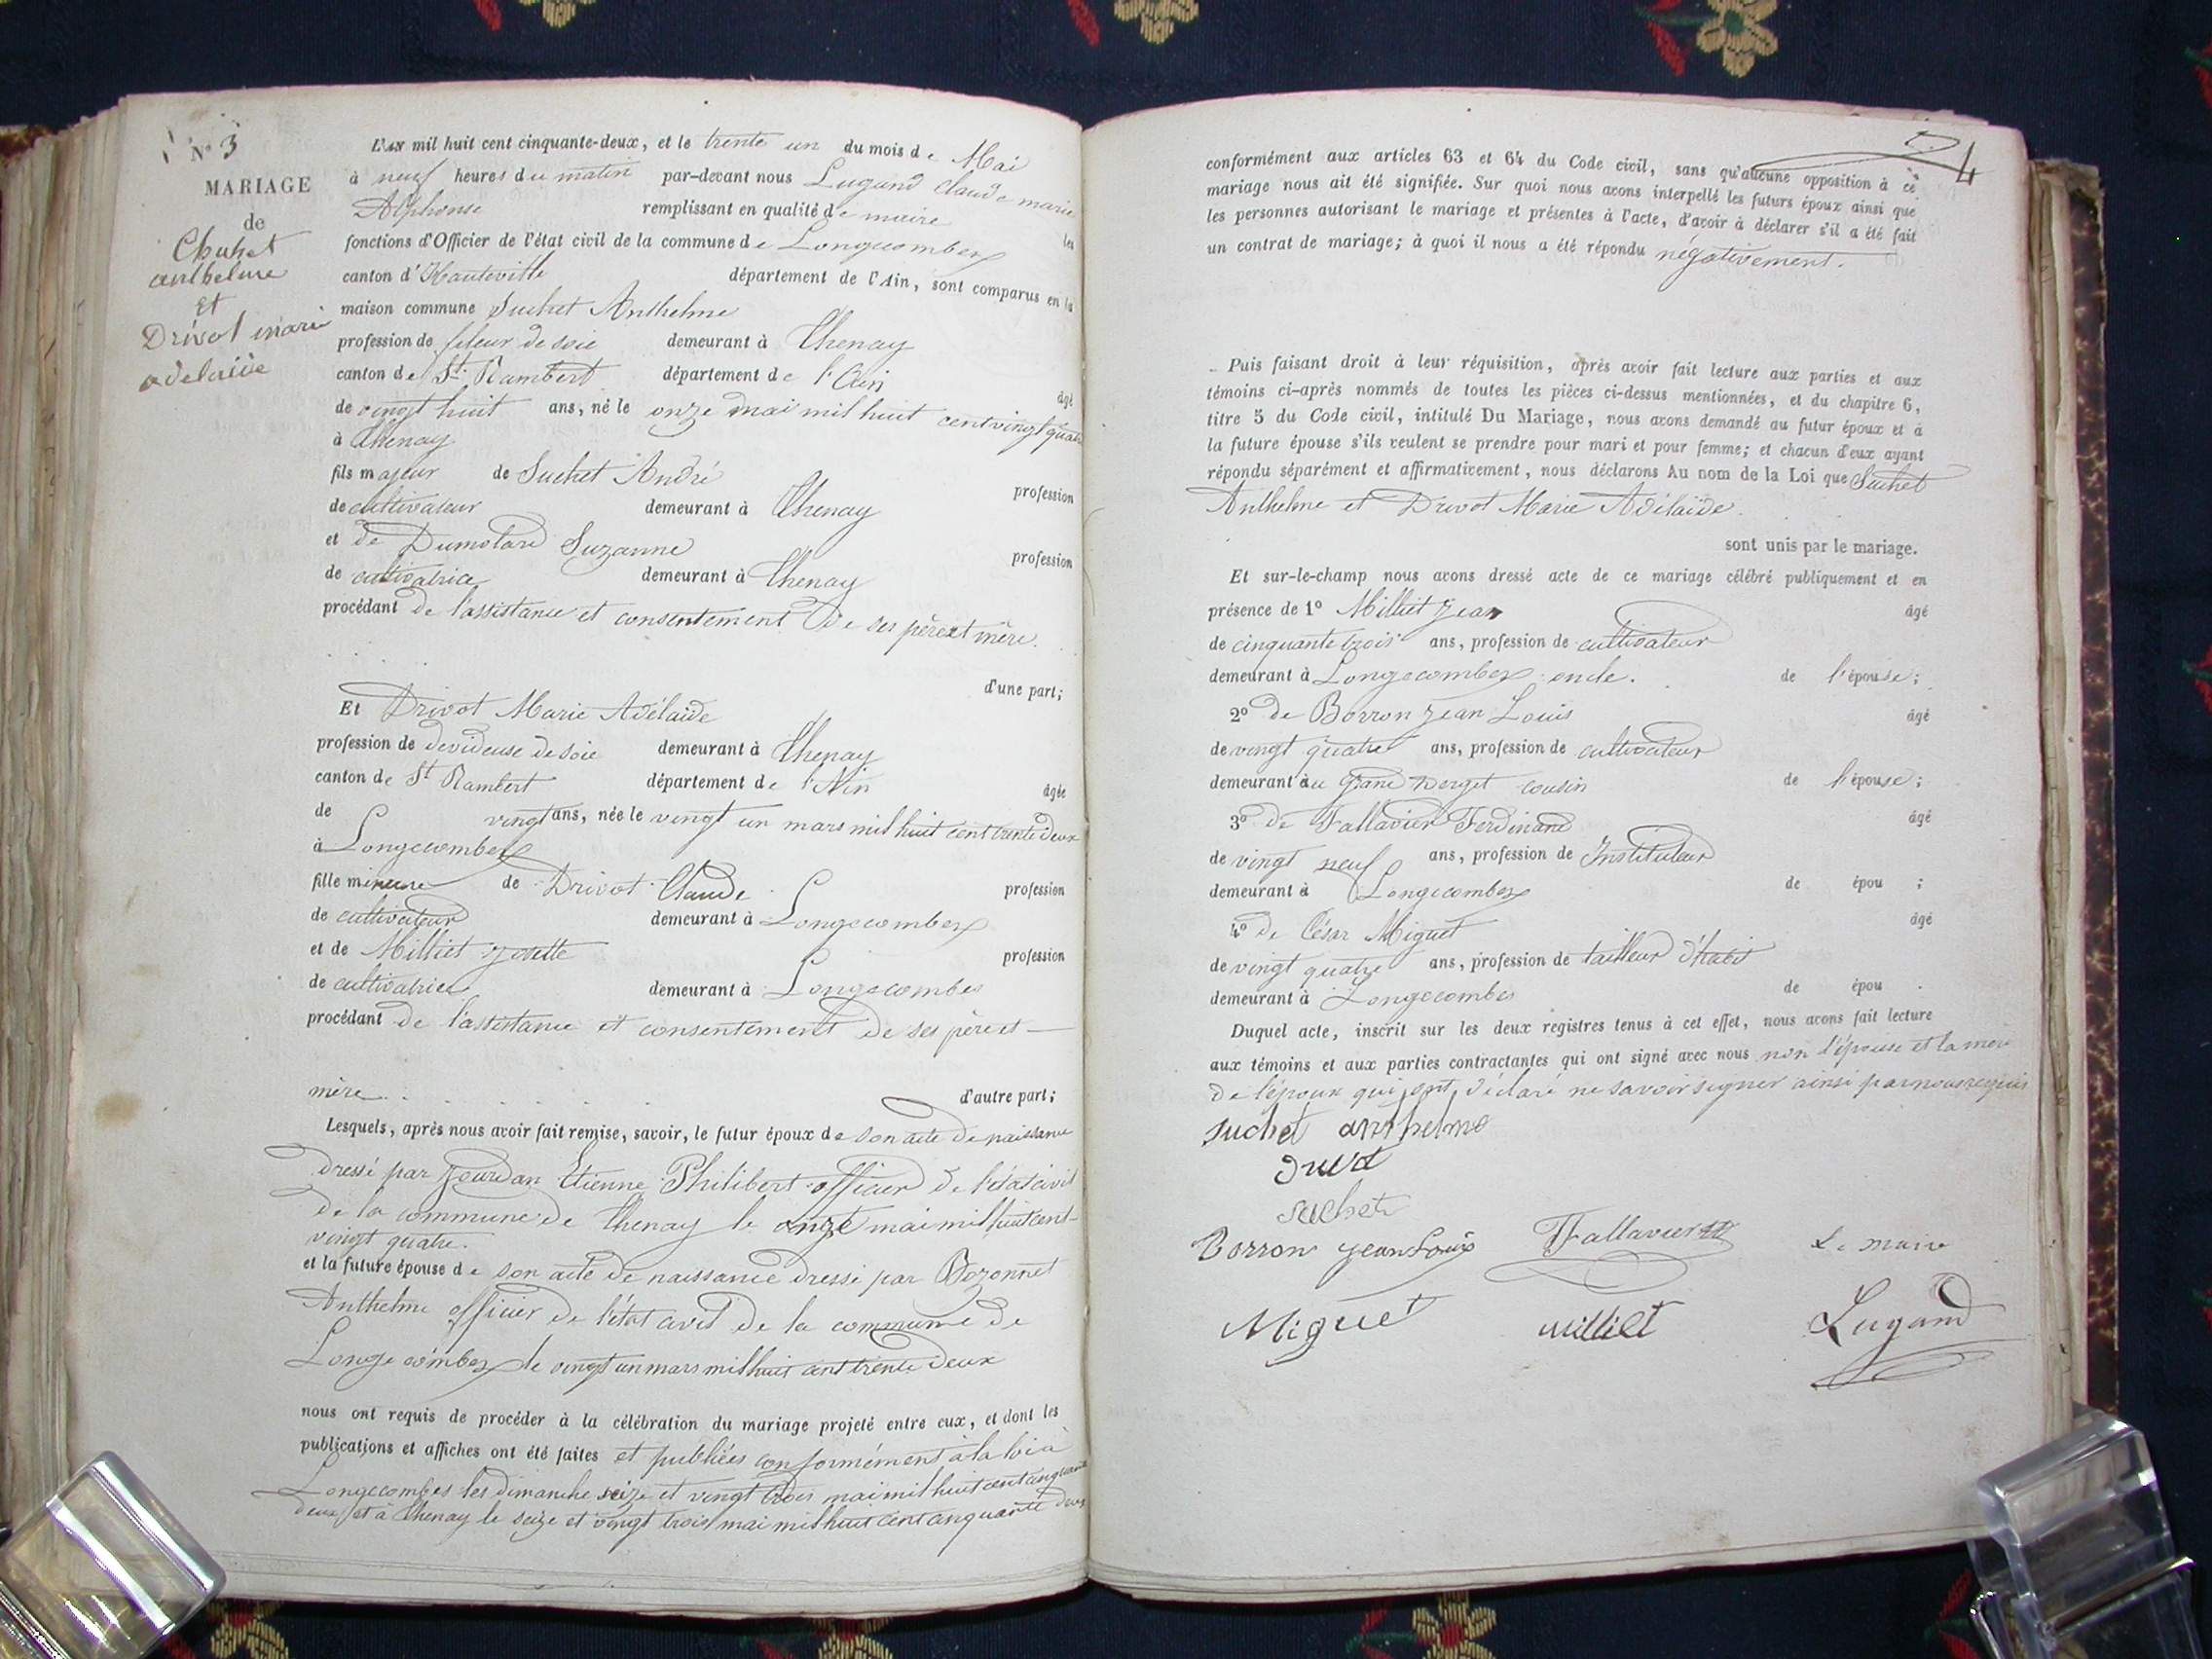 N° 3
MARIAGE
de
Chuhet
anthelme
et
Drivot marie
adelaide
L'an mil huit cent cinquante-deux, et le trente un du mois de Mai
à neuf heures du matin par-devant nous Lugand Claude marie
Alphonse remplissant en qualité de maire les
fonctions d'Officier de l'état civil de la commune de Longecombes
canton d'Hauteville département de l'Ain, sont comparus en la
maison commune Suchet Anthelme
profession de fileur de soie demeurant à Thenay
canton de St. Rambert département de l'Ain âgé
de vingt huit ans, né le onze mai mil huit cent vingt quatre
à Thenay
fils majeur de Suchet André profession
de cultivateur demeurant à Thenay
et de Dumolard Suzanne profession
de cultivatrice demeurant à Thenay
procédant de l'assistance et consentement de ses père et mère.
d'une part;
Et Drivot Marie Adélaïde
profession de devideuse de soie demeurant à Thenay
canton de St Rambert département de l'Ain âgée
de vingt ans, née le vingt un mars mil huit cent trente deux
à Longecombes
fille mineure de Drivot Claude profession
de cultivateur demeurant à Longecombes
et de Milliet Josette profession
de cultivatrice demeurant à Longecombes
procédant de l'assistance et consentement de ses père et
mère d'autre part;
Lesquels, après nous avoir fait remise, savoir, le futur époux de son acte de naissance
dressé par Jourdan Etienne Philibert officier de l'état civil
de la commune de Thenay le onze mai mil huit cent
vingt quatre.
et la future épouse de son acte de naissance dressé par Bozonnet
Anthelme officier de l'état civil de la commune de
Longecombes le vingt un mars mil huit cent trente deux
nous ont requis de procéder à la célébration du mariage projeté entre eux, et dont les
publications et affiches ont été faites et publiées conformément à la loi à
Longecombes les dimanche seize et vingt trois mai mil huit cent cinquante
deux et à Thenay le seize et vingt trois mai mil huit cent cinquante deux
4
conformément aux articles 63 et 64 du Code civil, sans qu'aucune opposition à ce
mariage nous ait été signifiée. Sur quoi nous avons interpellé les futurs époux ainsi que
les personnes autorisant le mariage et présentes à l'acte, d'avoir à déclarer s'il a été fait
un contrat de mariage; à quoi il nous a été répondu négativement.
Puis faisant droit à leur réquisition, après avoir fait lecture aux parties et aux
témoins ci-après nommés de toutes les pièces ci-dessus mentionnées, et du chapitre 6,
titre 5 du Code civil, intitulé Du Mariage, nous avons demandé au futur époux et à
la future épouse s'ils veulent se prendre pour mari et pour femme; et chacun d'eux ayant
répondu séparément et affirmativement, nous déclarons Au nom de la Loi que Suchet
Anthelme et Drivot Marie Adélaïde.
sont unis par le mariage.
Et sur-le-champ nous avons dressé acte de ce mariage célébré publiquement et en
présence de 1° Milliet Jean âgé
de cinquante trois ans, profession de cultivateur
demeurant à Longecombes oncle. de l'épouse;
2° de Borron Jean Louis âgé
de vingt quatre ans, profession de cultivateur
demeurant au grand cousin de l'épouse;
3° de Fallavier Ferdinand âgé
de vingt neuf ans, profession de Instituteur
demeurant à Longecombes de épou ;
4° de César Miguet âgé
de vingt quatre ans, profession de tailleur d'habit
demeurant à Longecombes de épou .
Duquel acte, inscrit sur les deux registres tenus à cet effet, nous avons fait lecture
aux témoins et aux parties contractantes qui ont signé avec nous non l'épouse et la mère
de l'époux qui ont déclaré ne savoir signer ainsi par nous requis
suchet anthelme
Drivot
suchet
Borron jean Louis Fallavier Le maire
Miguet milliet Lugand